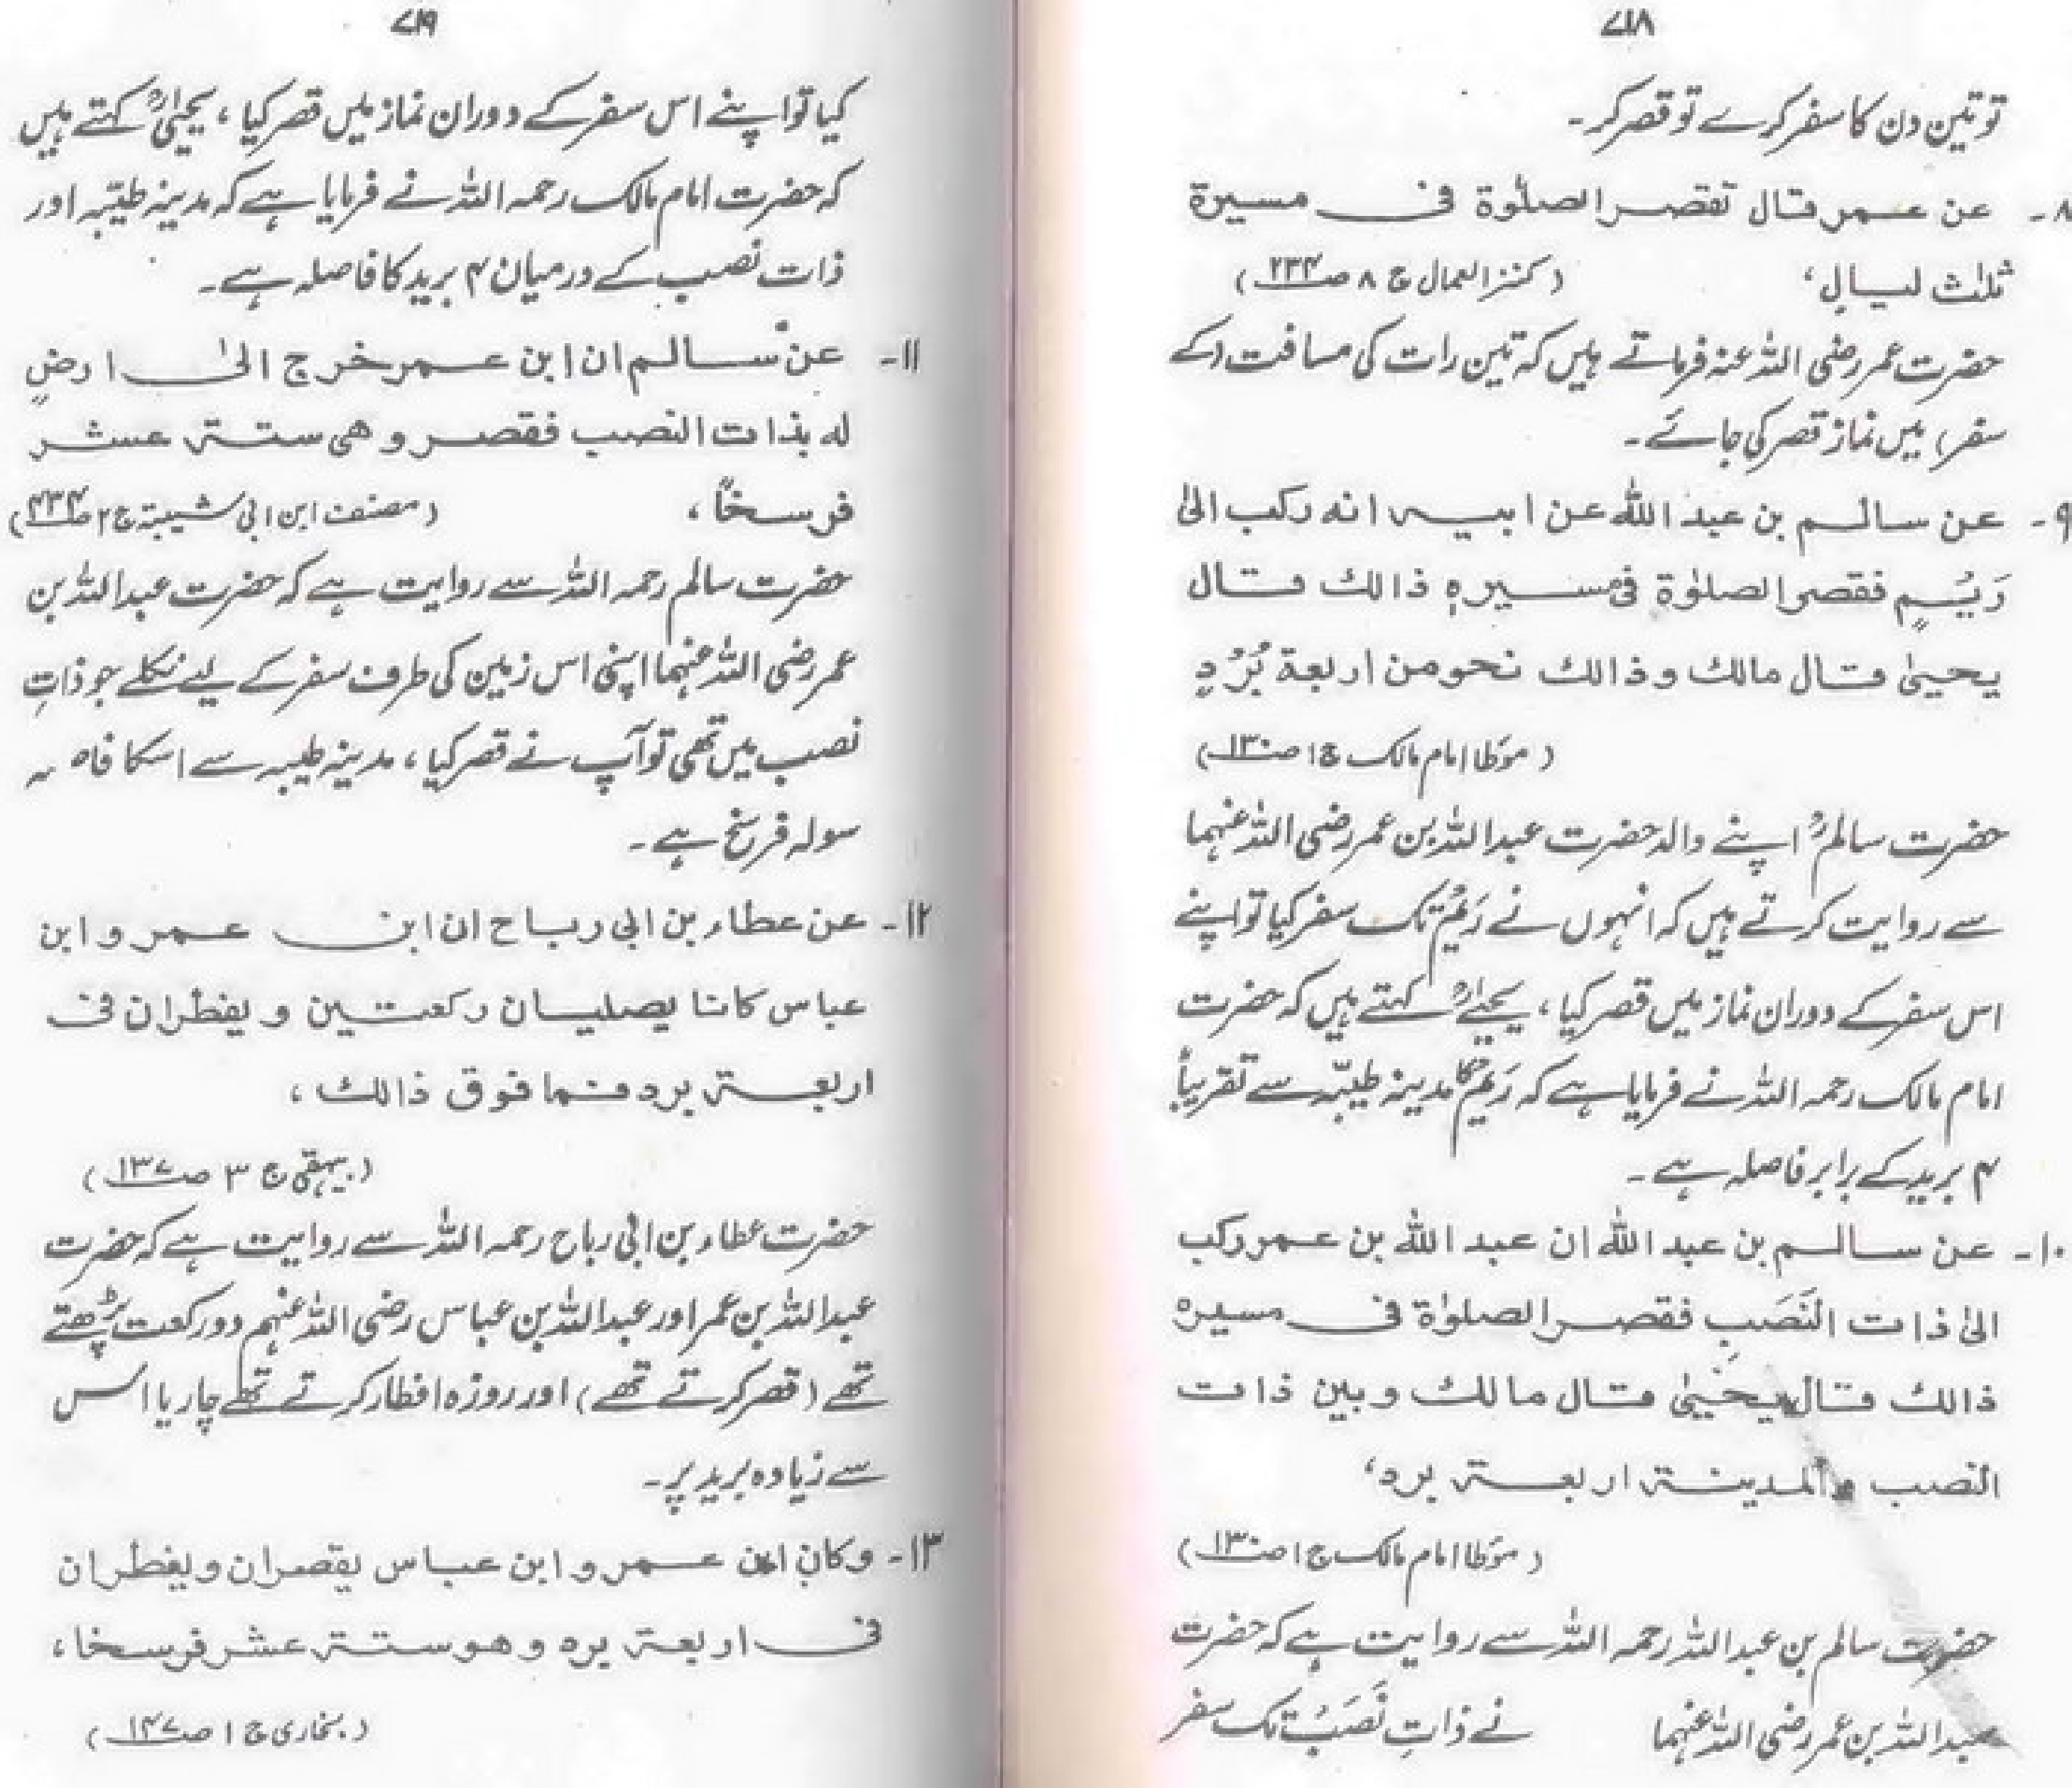 ۷۱۸
تو تین دن کا سفر کرے تو قصر کر۔
۸۔ عن عمر قال تقصر الصلوٰة فی مسیرة
ثلث لیالٍ، (کنز العمال ج ۸ ص ۲۳۴)
حضرت عمر رضی اللہ عنہ فرماتے ہیں کہ تین رات کی مسافت (کے
سفر) میں نماز قصر کی جائے۔
۹۔ عن سالم بن عبد اللہ عن ابیہ انہ رکب الیٰ
رَیْمٍ فقصر الصلوٰة فی مسیرہٖ ذالک قال
یحییٰ قال مالک وذالک نحو من اربعة بُرُدٍ
(مؤطا امام مالک ج ۱ ص ۱۳۰)
حضرت سالمؒ اپنے والد حضرت عبداللہ بن عمر رضی اللہ عنہما
سے روایت کرتے ہیں کہ انہوں نے رَیْم تک سفر کیا تو اپنے
اس سفر کے دوران نماز میں قصر کیا، یحیٰیؒ کہتے ہیں کہ حضرت
امام مالک رحمہ اللہ نے فرمایا ہے کہ رَیْم کا مدینہ طیبّہ سے تقریباً
۴ برید کے برابر فاصلہ ہے۔
۱۰۔ عن سالم بن عبد اللہ ان عبد اللہ بن عمر رکب
الیٰ ذات النَصَبِ فقصر الصلوٰة فی مسیرہ
ذالک قال یحییٰ قال مالک وبین ذات
النصب والمدینة اربعة برد،
(مؤطا امام مالک ج ۱ ص ۱۳۰)
حضرت سالم بن عبداللہ رحمہ اللہ سے روایت ہے کہ حضرت
عبداللہ بن عمر رضی اللہ عنہما نے ذاتِ نَصَبْ تک سفر
۷۱۹
کیا تو اپنے اس سفر کے دوران نماز میں قصر کیا، یحیٰیؒ کہتے ہیں
کہ حضرت امام مالک رحمہ اللہ نے فرمایا ہے کہ مدینہ طیّبہ اور
ذات نصب کے درمیان ۴ برید کا فاصلہ ہے۔
۱۱۔ عن سالم ان ابن عمر خرج الیٰ ارضٍ
لہ بذات النصب فقصر وھی ستة عشر
فرسخاً، (مصنف ابن ابی شیبة ج ۲ ص ۴۴۳)
حضرت سالم رحمہ اللہ سے روایت ہے کہ حضرت عبداللہ بن
عمر رضی اللہ عنہما اپنی اس زمین کی طرف سفر کے لیے نکلے جو ذاتِ
نصب میں تھی تو آپ نے قصر کیا، مدینہ طیبہ سے اسکا
سولہ فرسخ ہے۔
۱۲۔ عن عطاء بن ابی رباح ان ابن عمر وابن
عباس کانا یصلیان رکعتین ویفطران فی
اربعة برد فما فوق ذالک،
(بیہقی ج ۳ ص ۱۳۷)
حضرت عطاء بن ابی رباح رحمہ اللہ سے روایت ہے کہ حضرت
عبداللہ بن عمر اور عبداللہ بن عباس رضی اللہ عنہم دو رکعت پڑھتے
تھے (قصر کرتے تھے) اور روزہ افطار کرتے تھے چار یا اس
سے زیادہ برید پر۔
۱۳۔ وکان ابن عمر وابن عباس یقصران ویفطران
فی اربعة برد وھو ستة عشر فرسخا،
(بخاری ج ۱ ص ۱۴۷)